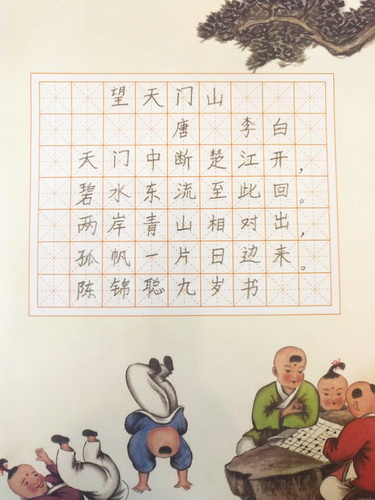 望天门山
唐 李白
天门中断楚江开，
碧水东流至此回。
两岸青山相对出，
孤帆一片日边来。
陈锦聪九岁书